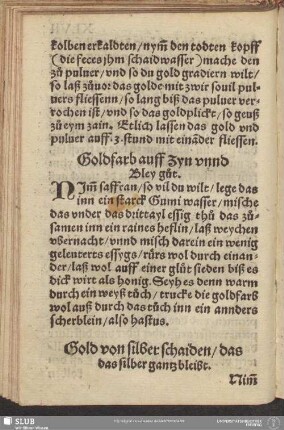 kolben erkaldten/ nym̃ den todten kopff
(die feces jhm schaidwasser) mache den
zů puluer/ vnd so du gold gradiern wilt/
so laß zůuor das golde mit zwir souil pul-
uers fliessenn/ so lang biß das puluer ver-
rochen ist/ vnd so das goldplickt/ so geuß
zů eym zain. Etlich lassen das gold vnd
puluer auff. 3. stund mit einãder fliessen.
Goldfarb auff Zyn vnnd
Bley gůt.
NIm̃ saffran/ so vil du wilt/ lege das
inn ein starck Gumi wasser/ mische
das vnder das drittayl essig thů das zů-
samen inn ein raines heflin/ laß weychen
vbernacht/ vnnd misch darein ein wenig
geleuterts essygs/ rürs wol durch einan-
der/ laß wol auff einer glůt sieden biß es
dick wirt als honig. Seyh es denn warm
durch ein weyß tůch/ trucke die goldfarb
wol auß durch das tůch inn ein annders
scherblein/ also hastus.
Gold von silber schaiden/ das
das silber gantz bleibt.
Nim̃
SLUB